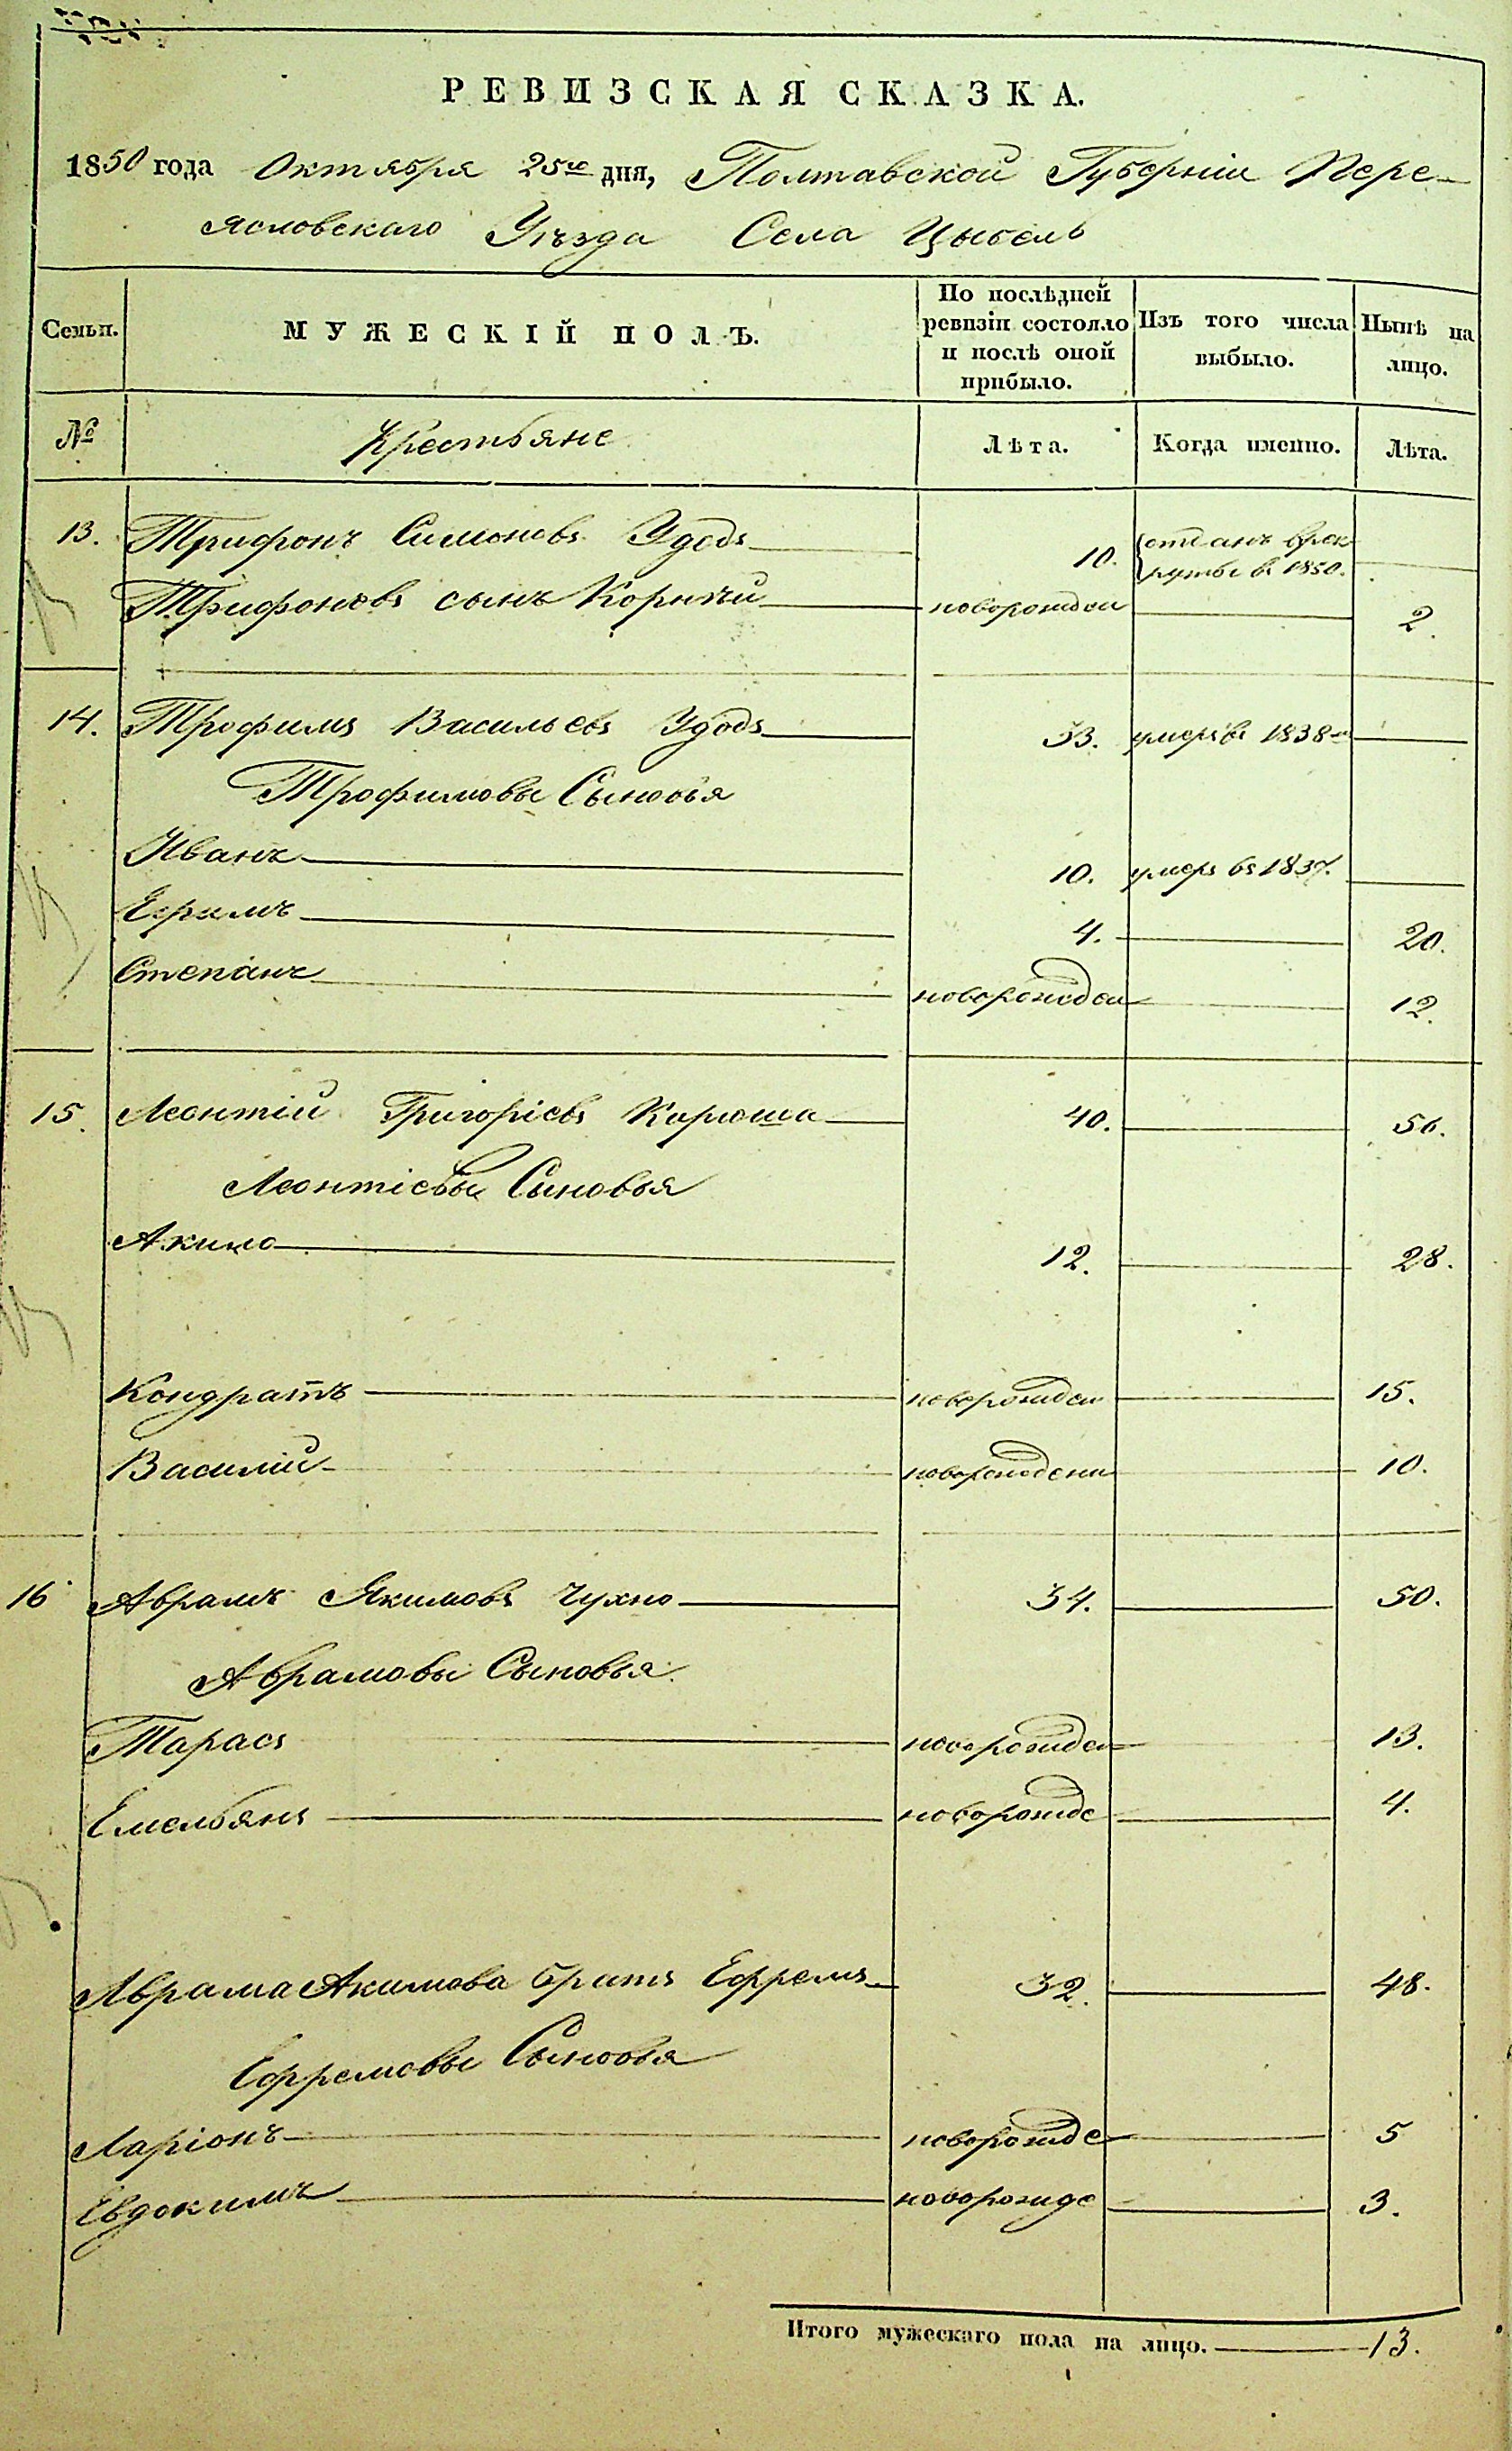 РЕВИЗСКАЯ СКАЗКА.
1850 года Октября 25го дня, Полтавской Губерніи Пере-
ясловскаго Уѣзда Села Цыбель
Семьи. МУЖЕСКІЙ ПОЛЪ. По послѣдней ревизіи состояло и послѣ оной прибыло. Изъ того числа выбыло. Нынѣ на лицо.
№ Крестьяне Лѣта. Когда именно. Лѣта.
13. Трифонъ Симоновъ Удодъ 10. отданъ врек
руты въ 1850.
Трифоновъ сынъ Корнѣй новорожден 2.
14. Трофимъ Васильевъ Удодъ 33. умеръ въ 1838
Трофимовы Сыновья
Иванъ 10. умеръ въ 1837.
Ефимъ 4. 20.
Степанъ новорожден 12.
15. Леонтій Григоріевъ Карюша 40. 56.
Леонтіевы Сыновья
Акимъ 12. 28.
Кондратъ новорожден 15.
Василій новорожден 10.
16 Аврамъ Якимовъ Чухно 34. 50.
Аврамовы Сыновья
Тарасъ новорожден 13.
Емельянъ новорожде 4.
Аврама Акимова братъ Ефремъ 32. 48.
Ефремовы Сыновья
Ларіонъ новорожде 5
Евдокимъ новорожде 3.
Итого мужескаго пола на лицо. 13.